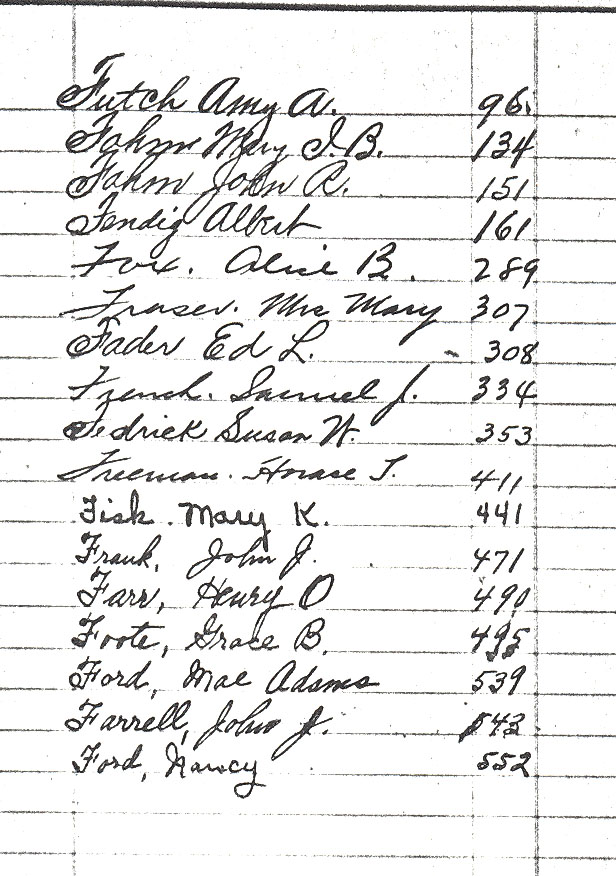 Futch Amy A. 96.
Fahm Mary I. B. 134
Fahm John R. 151
Fendig Albert 161
Fox. Alice B. 289
Fraser. Mrs Mary 307
Fader Ed L. 308
French. Samuel J. 334
Fedrick Susan W. 353
Freeman. Horase T. 411
Fisk. Mary K. 441
Frank, John J. 471
Farr, Henry O 490
Foote, Grace B. 495
Ford, Mae Adams 539
Farrell, John J. 543
Ford, Nancy 552